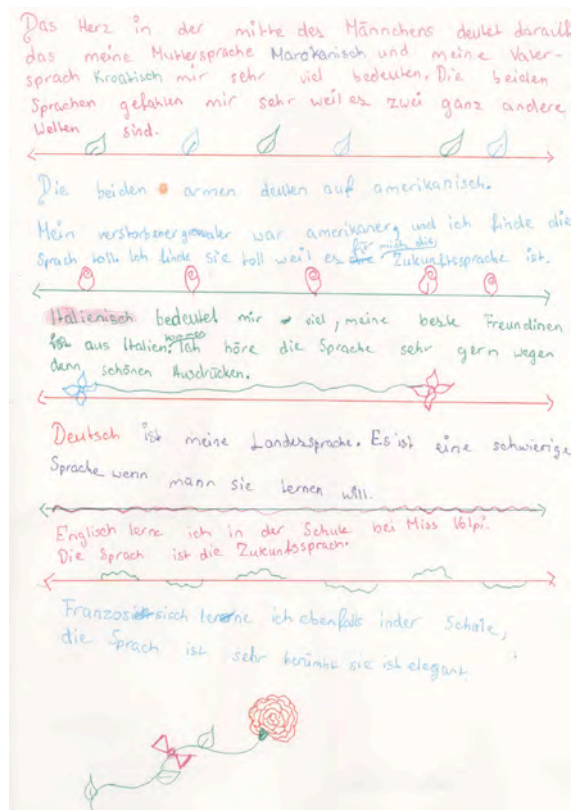 Das Herz in der mitte des Männchens deutet darauf
das meine Muttersprache Marokanisch und meine Vater-
sprach Kroatisch mir sehr viel bedeuten. Die beiden
Sprachen gefahlen mir sehr weil es zwei ganz andere
Welten sind.
Die beiden armen deuten auf amerikanisch.
Mein verstorbener war amerikaner, und ich finde die
Sprach toll. Ich finde sie toll weil es für mich die Zukunftssprache ist.
Italienisch bedeutet mir viel, meine beste Freundinen
aus Italien. Ich höre die Sprache sehr gern wegen
denn schönen Ausdrücken.
Deutsch ist meine Landessprache. Es ist eine schwierige
Sprache wenn mann sie lernen will.
Englisch lerne ich in der Schule bei Miss Volpi.
Die Sprach ist die Zukunftssprach.
ich ebenfalls inder Schule,
die Sprach ist sehr berümht sie ist elegant.